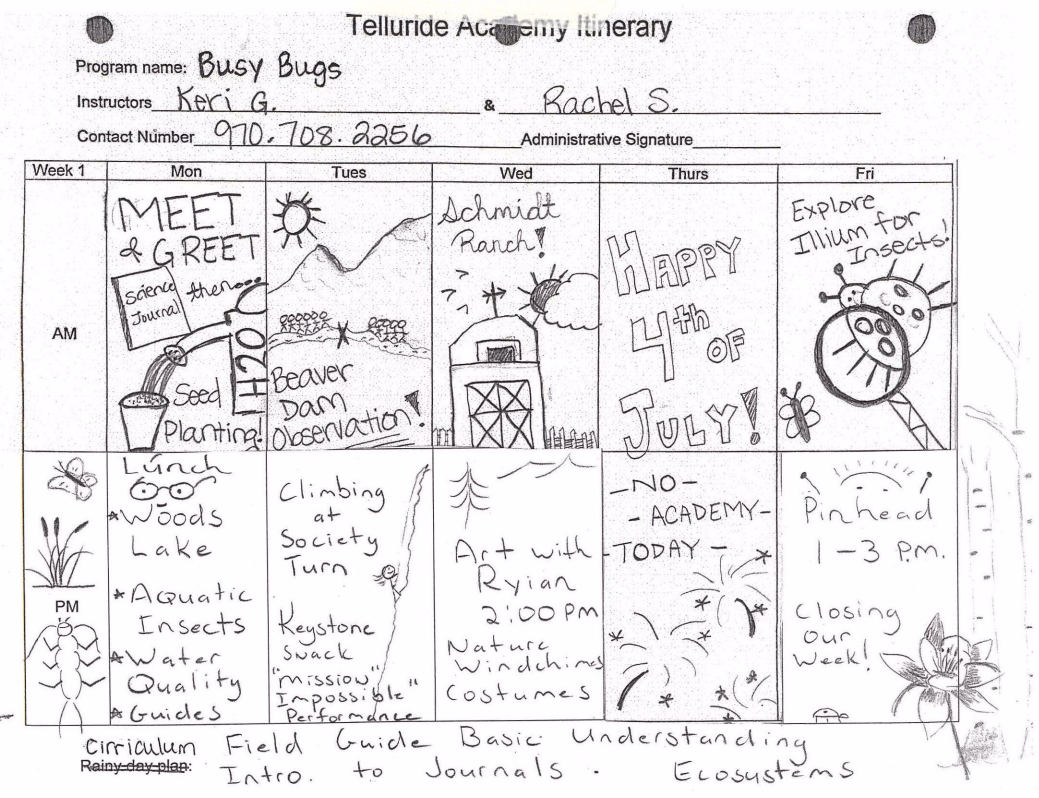 Telluride Academy Itinerary
Program name: Busy Bugs
Instructors Keri G. & Rachel S.
Contact Number 970.708.2256 Administrative Signature
Week 1 Mon Tues Wed Thurs Fri
AM
MEET
& GREET
Science
Journal
then...
H20
Seed
Planting!
Beaver
Dam
Observation!
Schmidt
Ranch!
HAPPY
4th
OF
JULY!
Explore
Illium for
Insects!
PM
Lunch
*Woods
Lake
*Aquatic
Insects
*Water
Quality
*Guides
Climbing
at
Society
Turn
Keystone
Snack
"Mission
Impossible"
Performance
Art with
Ryian
2:00 PM
Nature
Windchimes
Costumes
-NO-
-ACADEMY-
-TODAY-
Pinhead
1-3 P.M.
Closing
our
Week!
Cirriculum Field Guide Basic Understanding
Rainy day plan: Intro. to Journals. Ecosystems